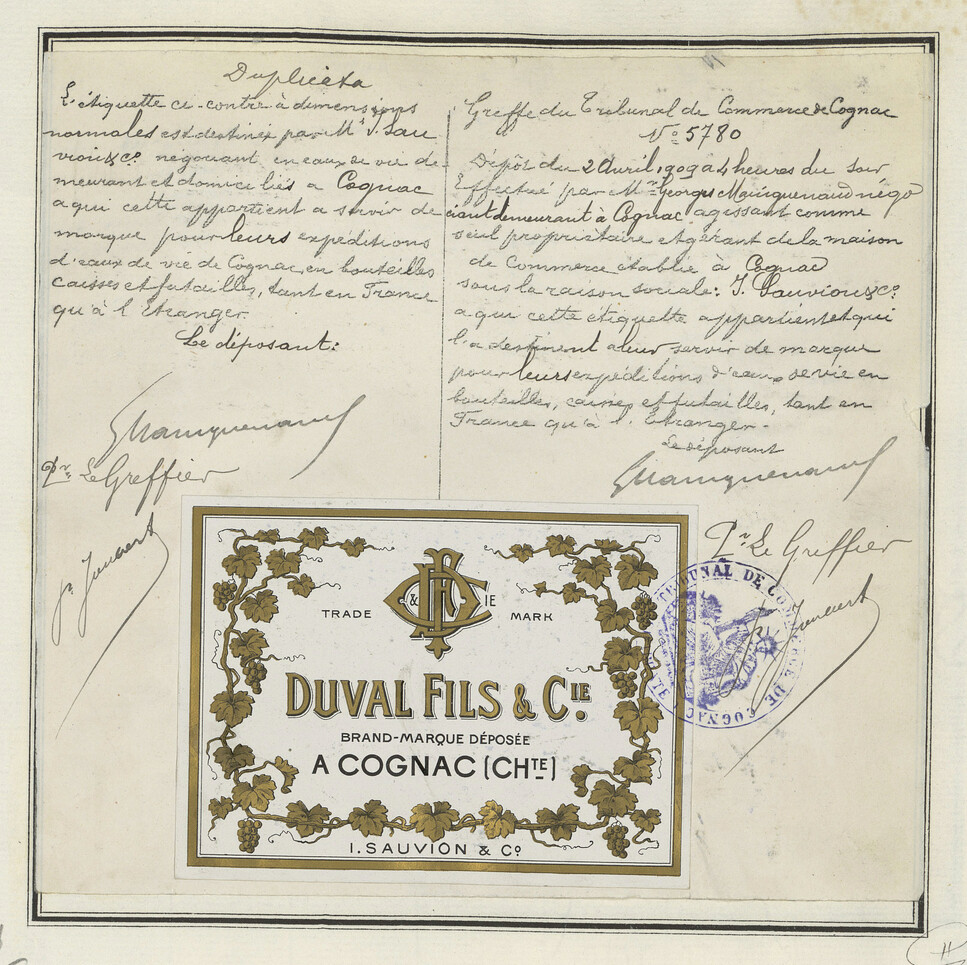 Duplicata
L'étiquette ci-contre à dimensions
normales est destinée par Mrs I. Sau
vion & Co. négociant en eaux de vie de
meurant et domiciliés à Cognac
a qui cette appartient a servir de
marque pour leurs expéditions
d'eaux de vie de Cognac, en bouteilles
caisses et futailles, tant en France
qu'à l'Etranger.
Le déposant:
GMainguenaud
Pr. Le Greffier
Greffe du Tribunal de Commerce de Cognac
No 5780
Dépôt du 2 Avril 1909 à 4 heures du soir
Effectué par Mr Georges Mainguenaud négo
ciant demeurant à Cognac agissant comme
seul propriétaire et gérant de la maison
de Commerce établie à Cognac
sous la raison sociale: I. Sauvion & Co.
a qui cette étiquette appartient et qui
l'a destinent a leur servir de marque
pour leurs expéditions d'eaux de vie en
bouteilles, caisses et futailles, tant en
France qu'à l'Etranger.
Le déposant
GMainguenaud
Pr. Le Greffier
TRIBUNAL DE COMMERCE DE COGNAC
DF & CIE
TRADE MARK
DUVAL FILS & CIE.
BRAND-MARQUE DÉPOSÉE
A COGNAC (CHTE)
I. SAUVION & Co